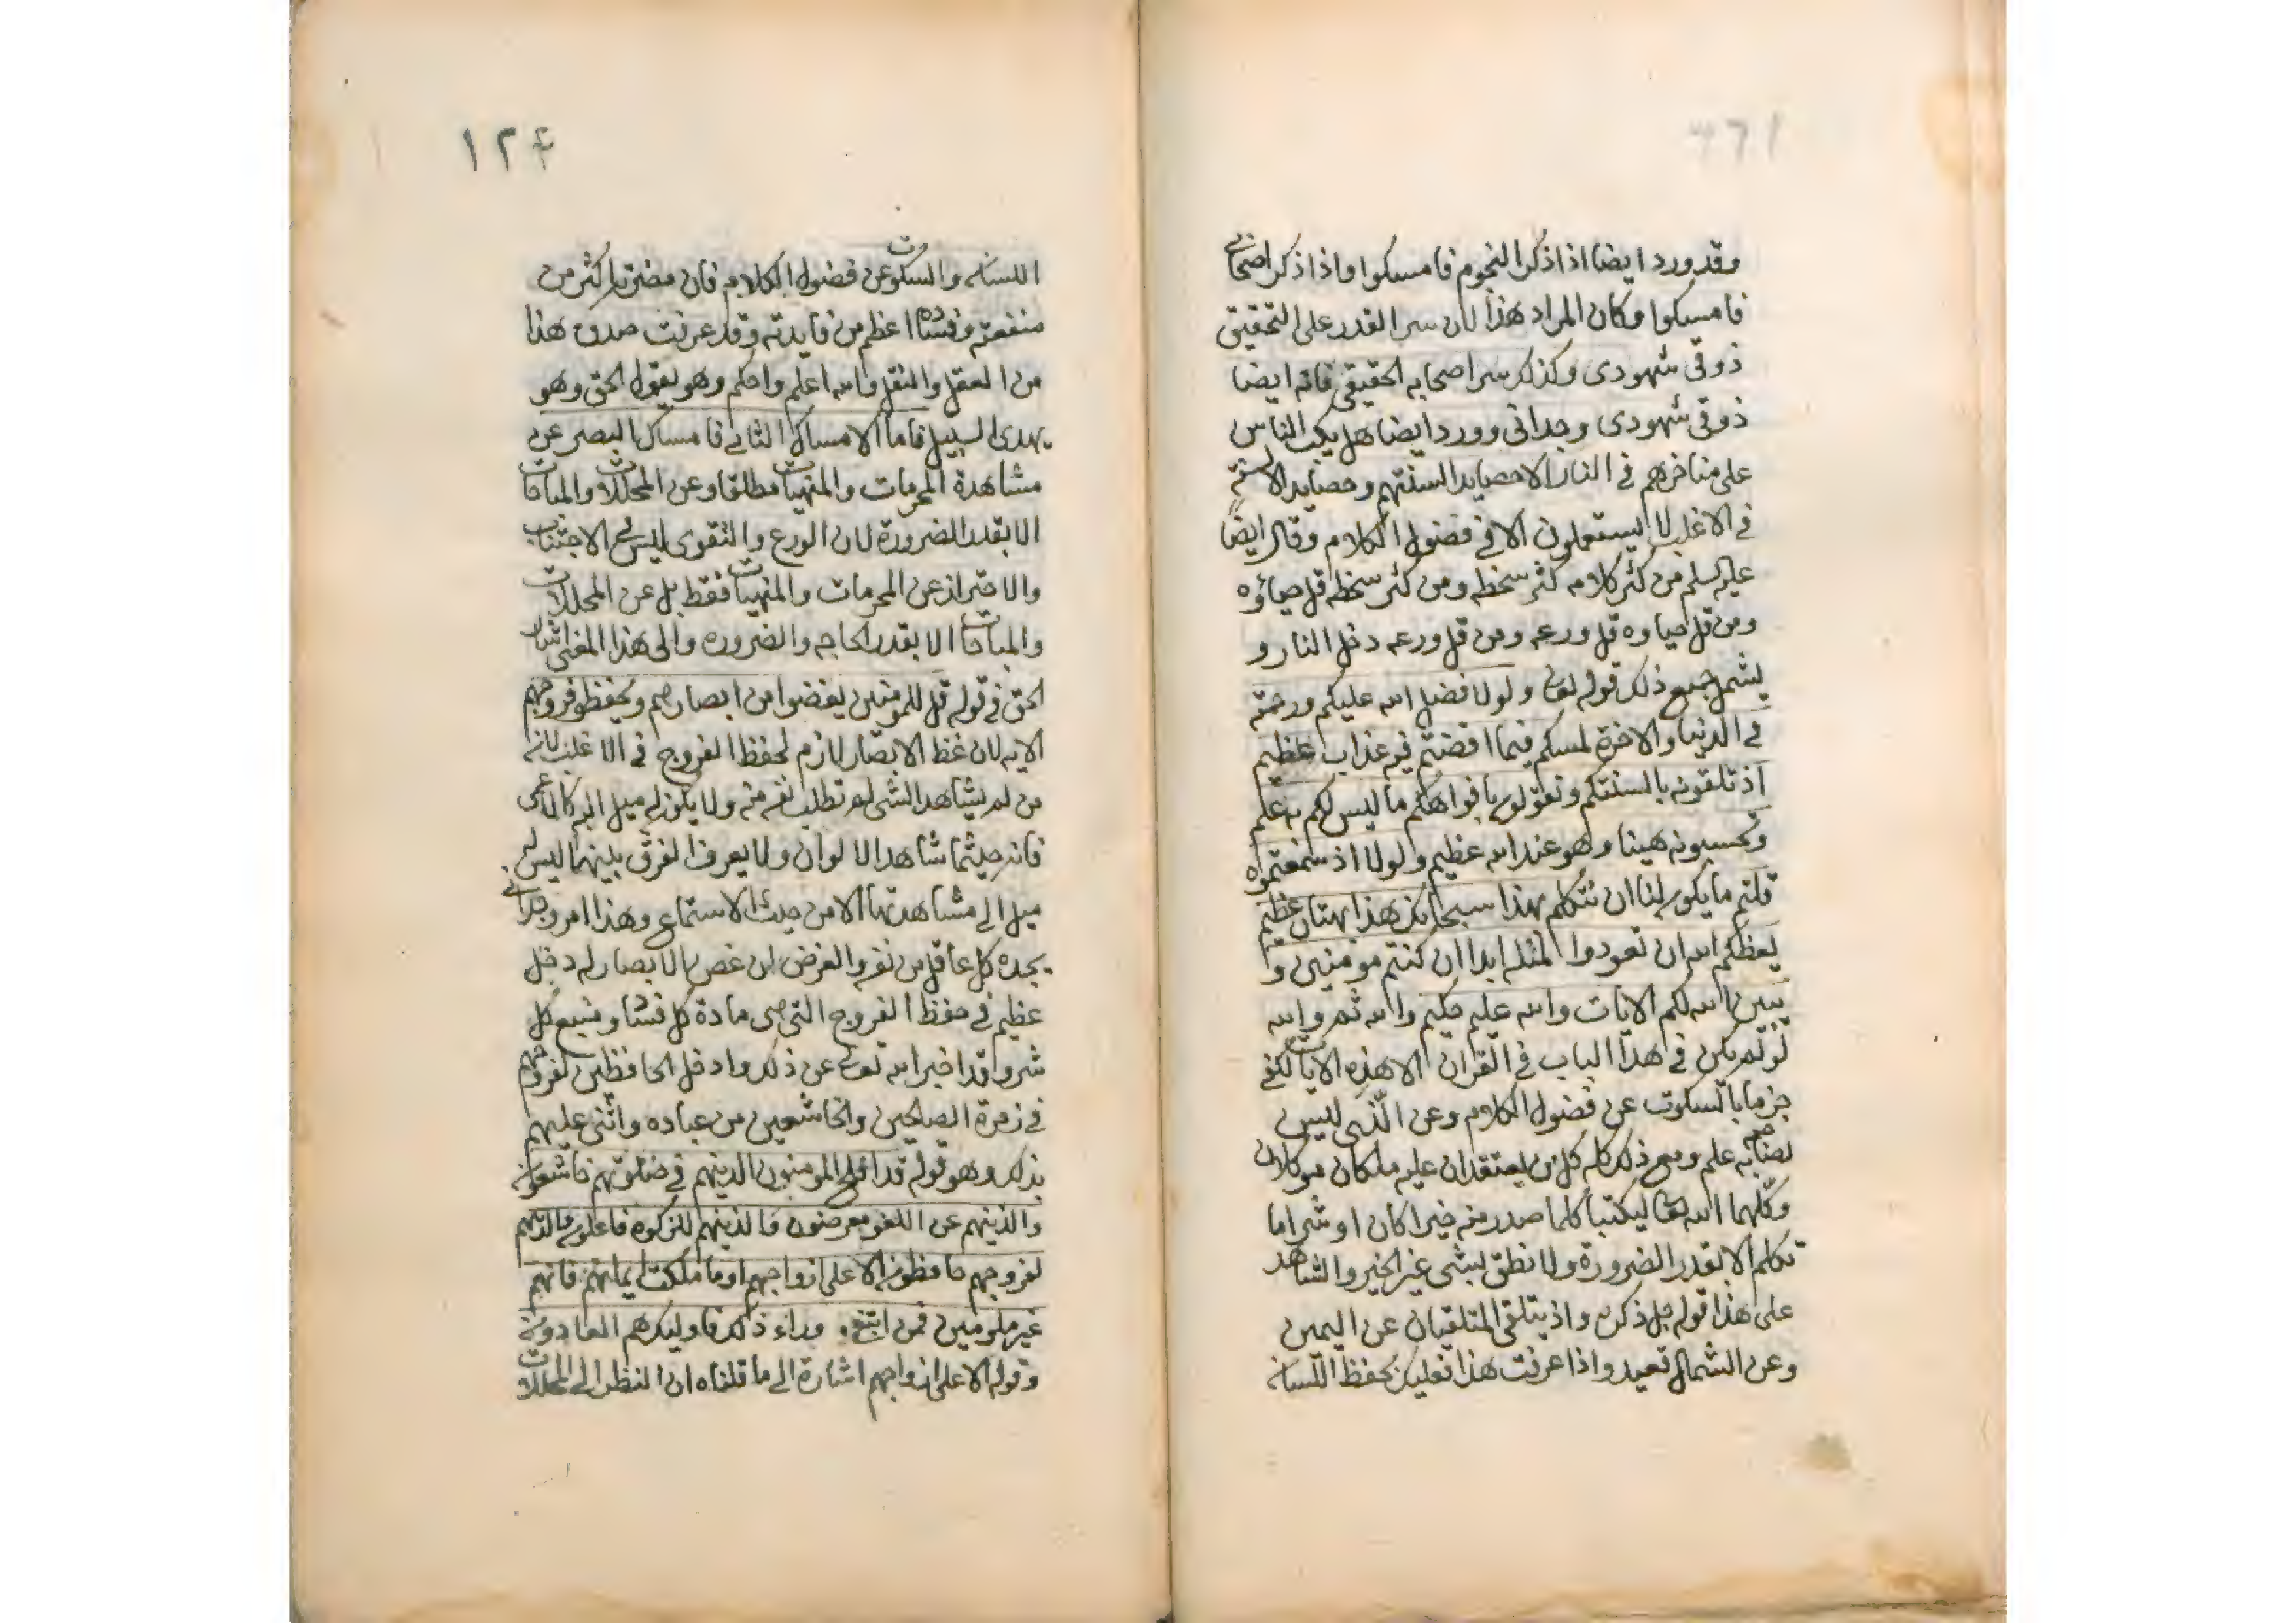 وقد ورد ايضا اذا ذكر النجوم فامسكوا واذا ذكر اصحابي
فامسكوا وكان المراد هذا لان سر القدر على التحقيق
ذوقى شهودى وكذلك سر اصحابه الحقيقى فانه ايضا
ذوقى شهودى وجدانى وورد ايضا هل يكب الناس
على مناخرهم فى النار الا حصايد السنتهم وحصايد الالسنة
فى الاغلب لا يستعملون الا فى فضول الكلام وقال ايضا
عليه السلم من كثر كلامه كثر سخطه ومن كثر سخطه قل حياؤه
ومن قل حياوه قل ورعه ومن قل ورعه دخل النار و
يشمل جميع ذلك قوله تعالى ولولا فضل الله عليكم ورحمته
فى الدنيا والاخرة لمسكم فيما افضتم فيه عذاب عظيم
اذ تلقونه بالسنتكم وتقولون بافواهكم ما ليس لكم به علم
وتحسبونه هينا وهو عند الله عظيم ولولا اذ سمعتموه
قلتم ما يكون لنا ان نتكلم بهذا سبحانك هذا بهتان عظيم
يعظكم الله ان تعودوا لمثله ابدا ان كنتم مومنين و
يبين الله لكم الايات والله عليم حكيم والله ثم والله
لو لم يكن فى هذا الباب فى القران الا هذه الايات لكفى
جزما بالسكوت عن فضول الكلام وعن الذى ليس
لصاحبه به علم ومع ذلك كله كل من يعتقد ان عليه ملكان موكلان
وكلهما الله تعالى ليكتبا كلما صدر منه خيرا كان او شرا ما
تكلم الا بقدر الضرورة ولا نطق بشى غير الخير والشاهد
على هذا قوله جل ذكره واذ يتلقى المتلقيان عن اليمين
وعن الشمال قعيد واذا عرفت هذا فعليك بحفظ اللسان
١٢٤
اللسان والسكوت عن فضول الكلام فان مضرته اكثر من
منفعته وفساده اعظم من فايدته وقد عرفت صدق هذا
من العقل والنقل والله اعلم واحكم وهو يقول الحق وهو
يهدى السبيل فاما الامساك الثانى فامساك البصر عن
مشاهدة المحرمات والمنهيات مطلقا وعن المحللات والمباحات
الا بقدر الضرورة لان الورع والتقوى ليس هو الاجتناب
والاحتراز عن المحرمات والمنهيات فقط بل عن المحللات
والمباحات الا بقدر الحاجه والضروره والى هذا المعنى اشار
الحق فى قوله قل للمومنين يغضوا من ابصارهم ويحفظو فروجهم
الايه لان غظ الابصار لازم لحفظ الفروج فى الاغلب لانه
من لم يشاهد الشى لم تطلب نفسه منه ولا يكون له ميل اليه كالاعمى
فانه حيثما شاهد الالوان ولا يعرف الفرق بينهما ليس له
ميل الى مشاهدتها الا من حيث الاستماع وهذا امر وجدانى
يجده كل عاقل من نفسه والغرض ان غض الابصار له دخل
عظيم فى حفظ الفروج التى هى مادة كل فساد ومنبع كل
شر وقد اخبر الله تعالى عن ذلك وادخل الحافظين لفروجهم
فى زمرة الصالحين والخاشعين من عباده واثنى عليهم
بذلك وهو قوله قد افلح المومنون الذينهم فى صلوتهم خاشعون
والذينهم عن اللغو معرضون والذينهم للزكوة فاعلون والذينهم
لفروجهم حافظون الا على ازواجهم او ما ملكت ايمانهم فانهم
غير ملومين فمن ابتغى وراء ذلك فاوليك هم العادون
وقوله الا على ازواجهم اشارة الى ما قلناه ان النظر الى المحللات